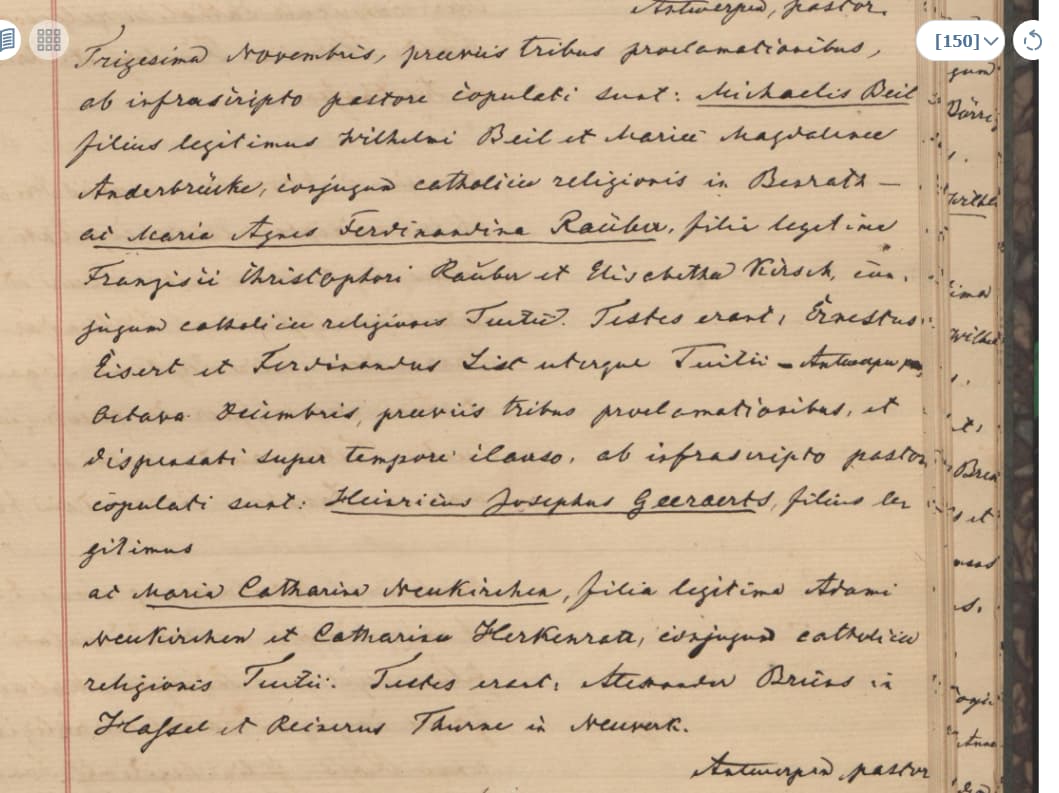 Antwerpen, pastor.
[150]
Trigesima Novembris, praeviis tribus proclamationibus,
ab infrascripto pastore copulati sunt: Michaelis Beil
filius legitimus Wilhelmi Beil et Mariae Magdalenae
Anderbrücke, conjugum catholicae religionis in Benrath —
ac Maria Agnes Ferdinandina Raüber, filia legitima
Francisci Christophori Raüber et Elisabetha Kirsch, con-
jugum catholicae religionis Tuitii. Testes erant: Ernestus
Eisert et Ferdinandus List uterque Tuitii — Antwerpen
Octava Decembris, praeviis tribus proclamationibus, et
dispensati super tempore clauso, ab infrascripto pastore
copulati sunt: Heinricus Josephus Geeraerts, filius le-
gitimus
ac Maria Catharina Neukirchen, filia legitima Adami
Neukirchen et Catharina Herkenrath, conjugum catholicae
religionis Tuitii. Testes erant: Alexander Brüns in
Hassel et Reinerus Thurne in Neuwerk.
Antwerpen, pastor